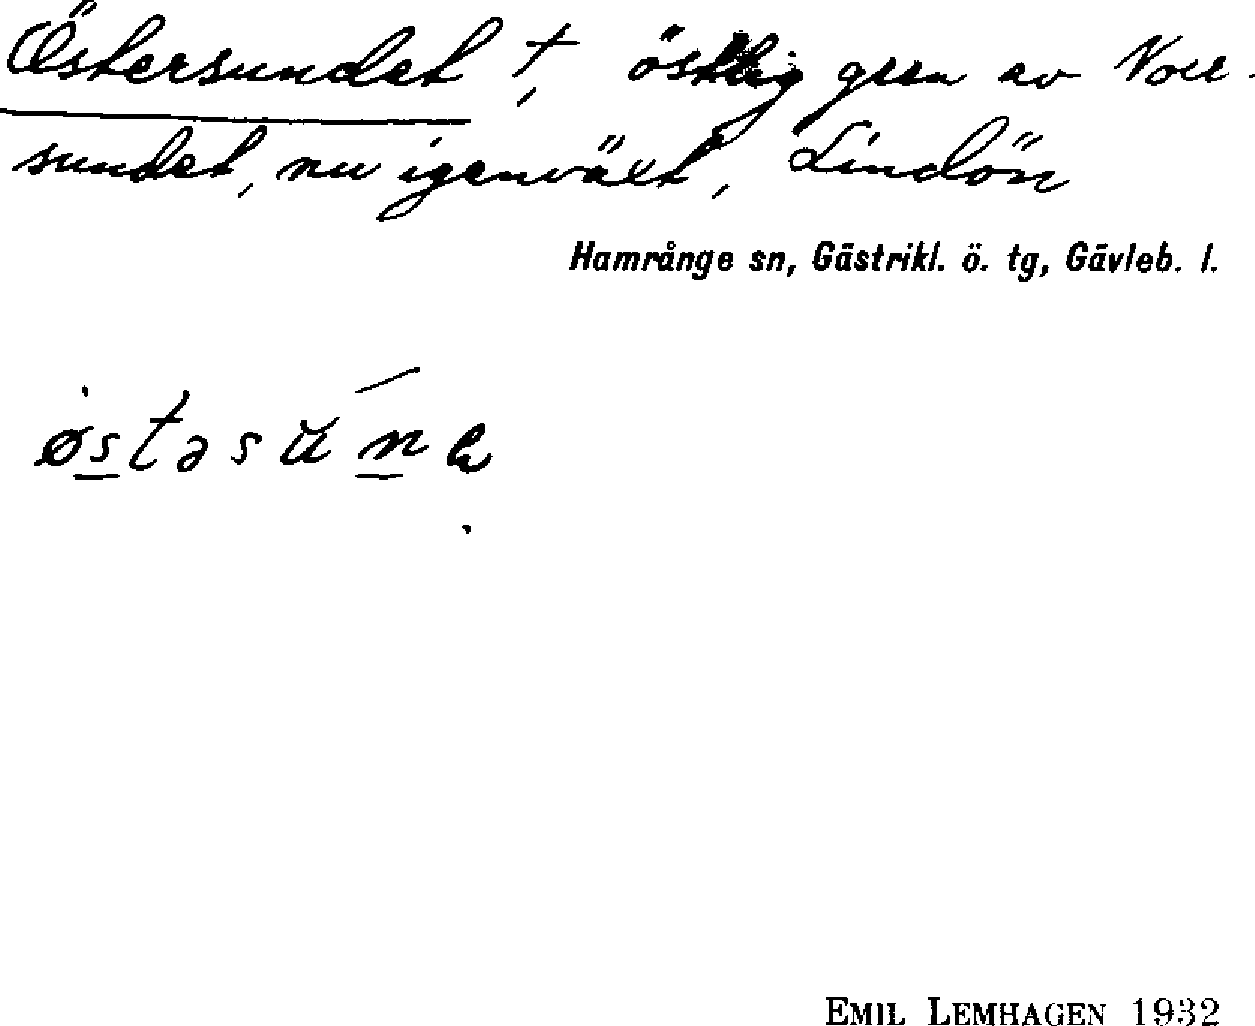 Östersundet †, östlig gren av Norr-
sundet, nu igenväxt, Lindön
Hamrånge sn, Gästrikl. ö. tg, Gävleb. l.
EMIL LEMHAGEN 1932